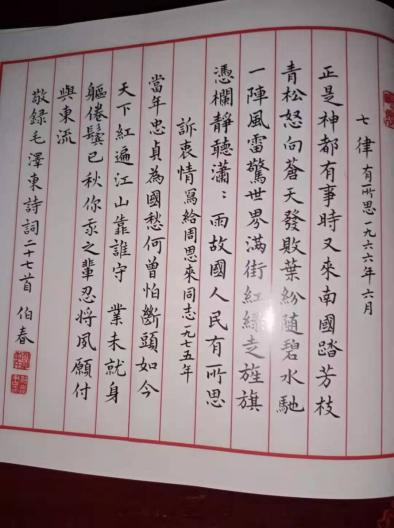 七律 有所思 一九六六年六月
正是神都有事時又來南國踏芳枝
青松怒向蒼天發敗葉紛隨碧水馳
一陣風雷驚世界滿街紅綠走旌旗
憑欄靜聽瀟:雨故國人民有所思
訴衷情 寫給周恩來同志 一九七五年
當年忠貞為國愁何曾怕斷頭如今
天下紅遍江山靠誰守 業未就身
軀倦鬢已秋你我之輩忍將夙願付
與東流
敬録毛澤東詩詞二十七首 伯春